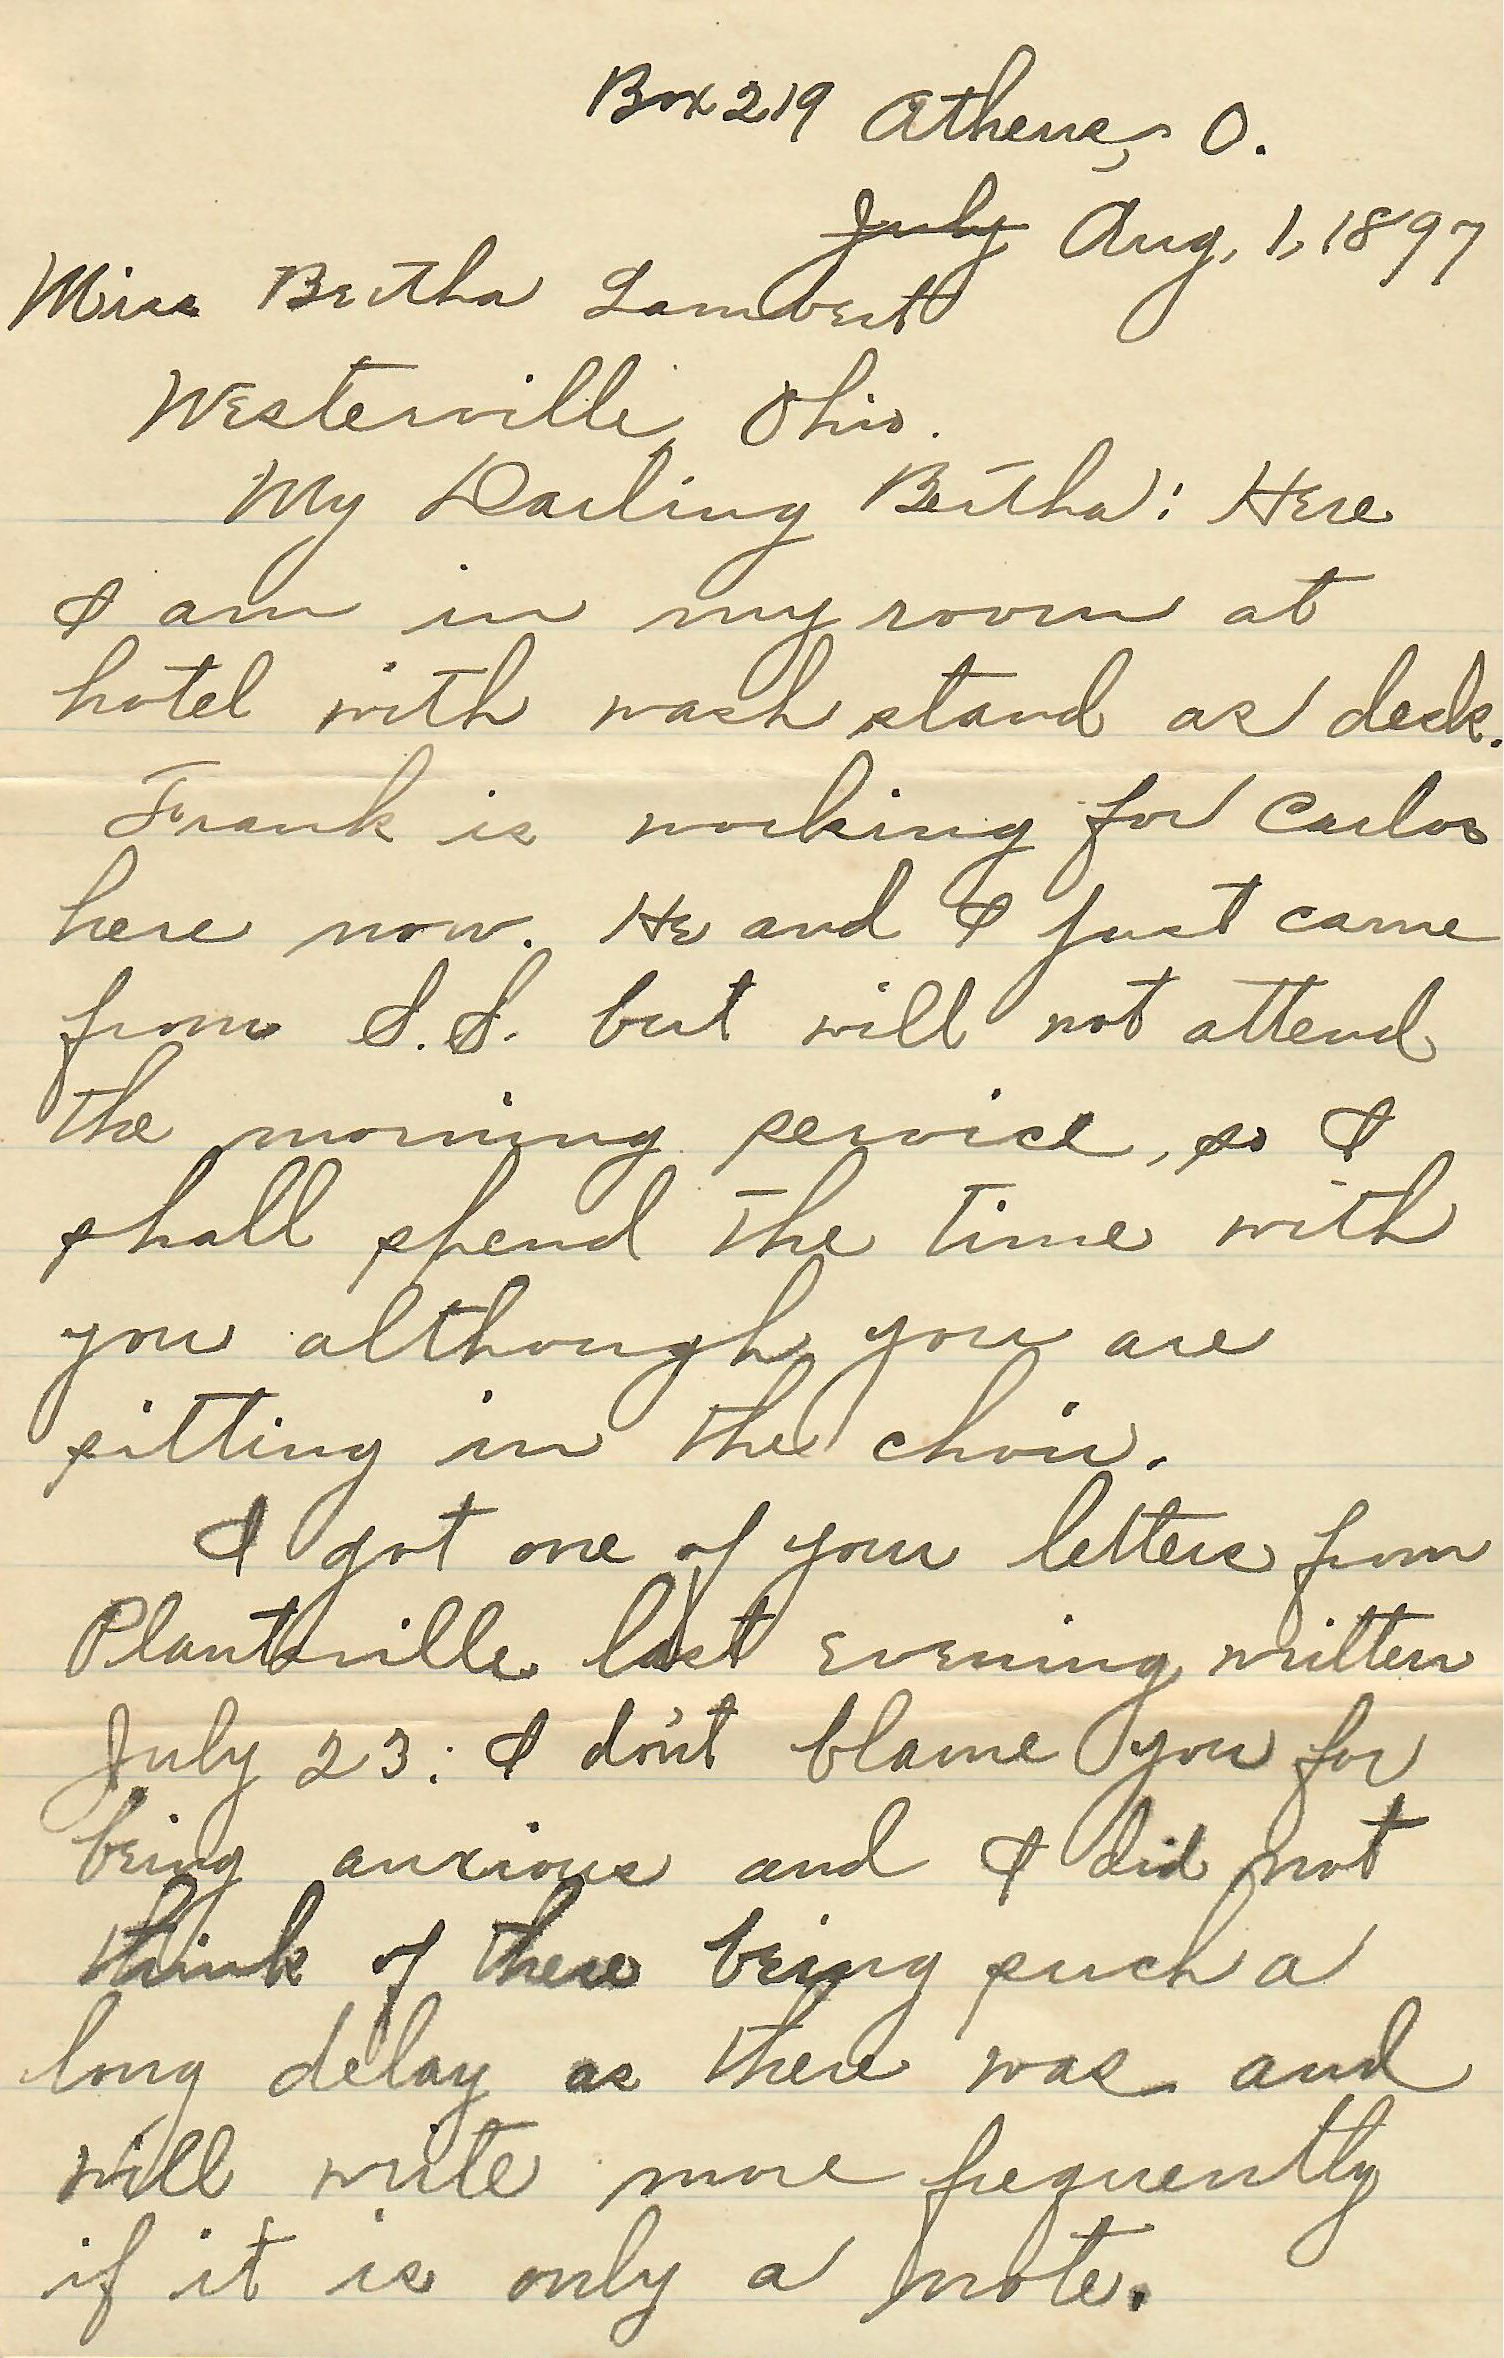 Box 219 Athens, O.
July Aug, 1, 1897
Miss Bertha Lambert
Westerville, Ohio.
My Darling Bertha: Here
I am in my room at
hotel with wash stand as desk.
Frank is working for Carlos
here now. He and I just came
from S.S. but will not attend
the morning service, so I
shall spend the time with
you although you are
sitting in the choir.
I got one of your letters from
Plantsville last evening written
July 23. I don't blame you for
being anxious and I did not
think of there being such a
long delay as there was and
will write more frequently
if it is only a note.